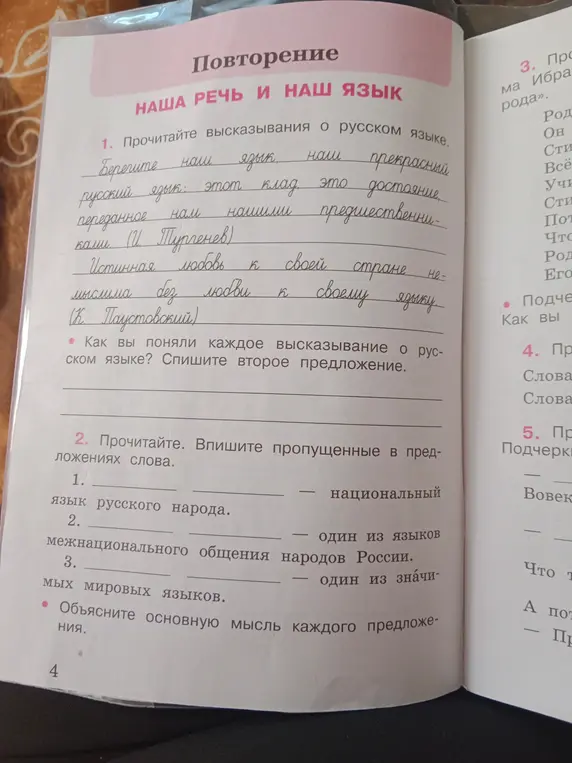 Повторение
НАША РЕЧЬ И НАШ ЯЗЫК
1. Прочитайте высказывания о русском языке.
Берегите наш язык, наш прекрасный
русский язык: этот клад, это достояние,
переданное нам нашими предшественни-
ками (И. Тургенев)
Истинная любовь к своей стране не-
мыслима без любви к своему языку
(К. Паустовский)
• Как вы поняли каждое высказывание о рус-
ском языке? Спишите второе предложение.
2. Прочитайте. Впишите пропущенные в пред-
ложениях слова.
1. ___ ___ — национальный
язык русского народа.
2. ___ ___ — один из языков
межнационального общения народов России.
3. ___ ___ — один из зна́чи-
мых мировых языков.
• Объясните основную мысль каждого предложе-
ния.
4
3.
ма Ибра
рода».
Род
Он
Сти
Всё
Учи
Сти
Пот
Что
Род
Его
• Подче
Как вы
4. Пр
Слова
Слова
5. Пр
Подчерк
—
Вовек
—
Что т
А пот
— Пр